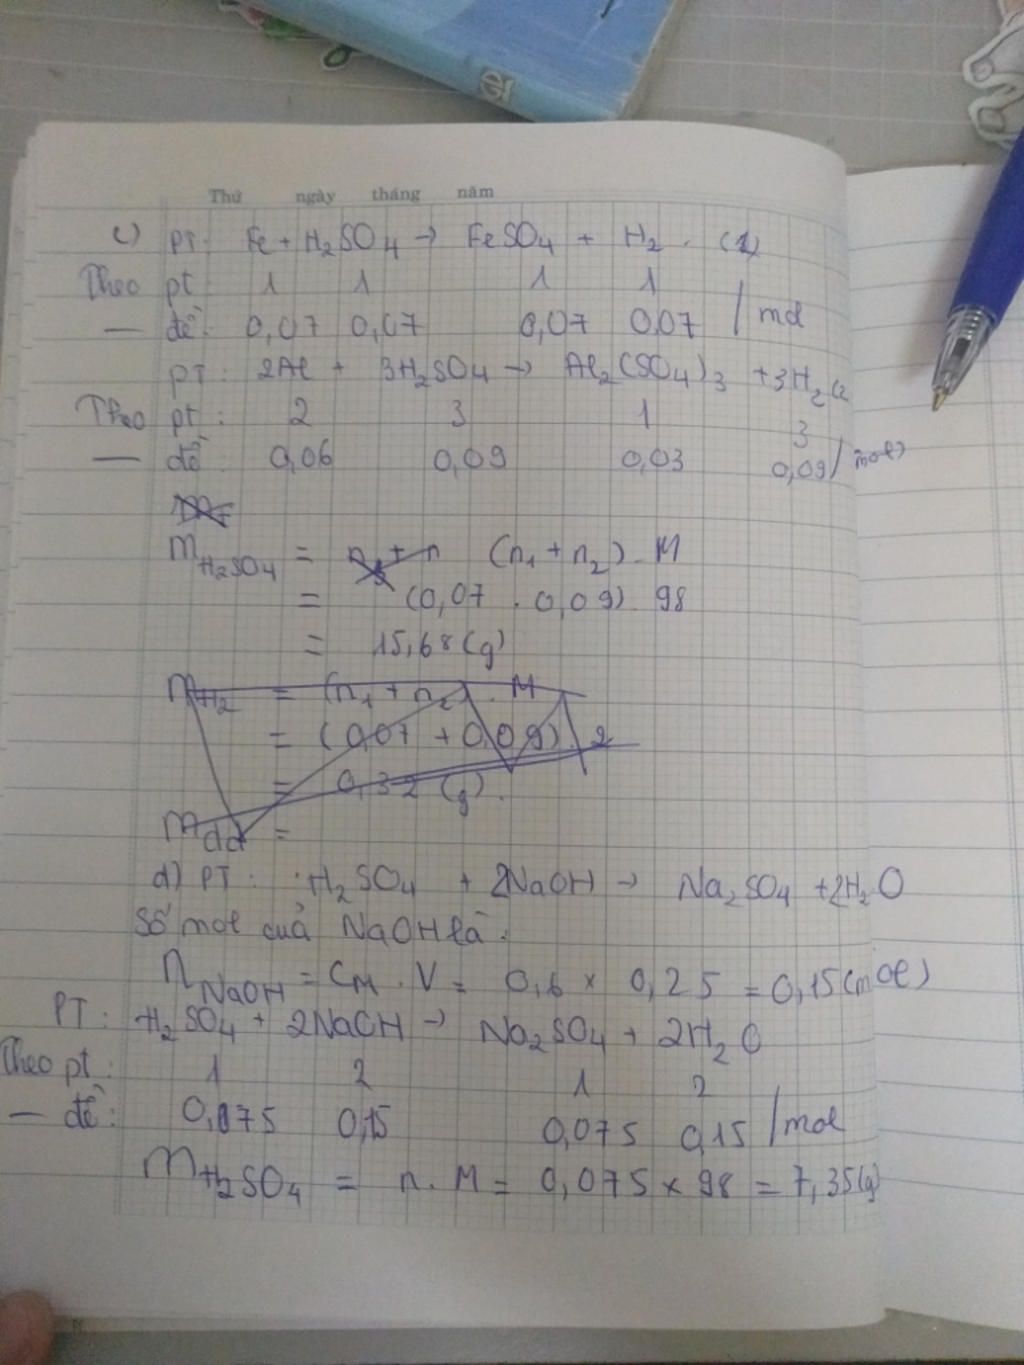 Thứ ngày tháng năm
c) PT: Fe + H₂SO₄ → FeSO₄ + H₂ . (1)
Theo pt: 1 1 1 1
— đề: 0,07 0,07 0,07 0,07 / mol
PT: 2Al + 3H₂SO₄ → Al₂(SO₄)₃ + 3H₂ (2
Theo pt: 2 3 1 3
— đề: 0,06 0,09 0,03 0,09 / mol)
m H₂SO₄ = (n₁ + n₂) . M
= (0,07 . 0,09) . 98
= 15,68 (g)
m H₂ = (n₁ + n₂) . M
= (0,07 + 0,09) . 2
= 0,32 (g).
m dd =
d) PT: H₂SO₄ + 2NaOH → Na₂SO₄ + 2H₂O
Số mol của NaOH là:
n NaOH = C_M . V = 0,6 × 0,25 = 0,15 (mol)
PT: H₂SO₄ + 2NaOH → Na₂SO₄ + 2H₂O
Theo pt: 1 2 1 2
— đề: 0,075 0,15 0,075 0,15 / mol
m H₂SO₄ = n . M = 0,075 × 98 = 7,35 (g)